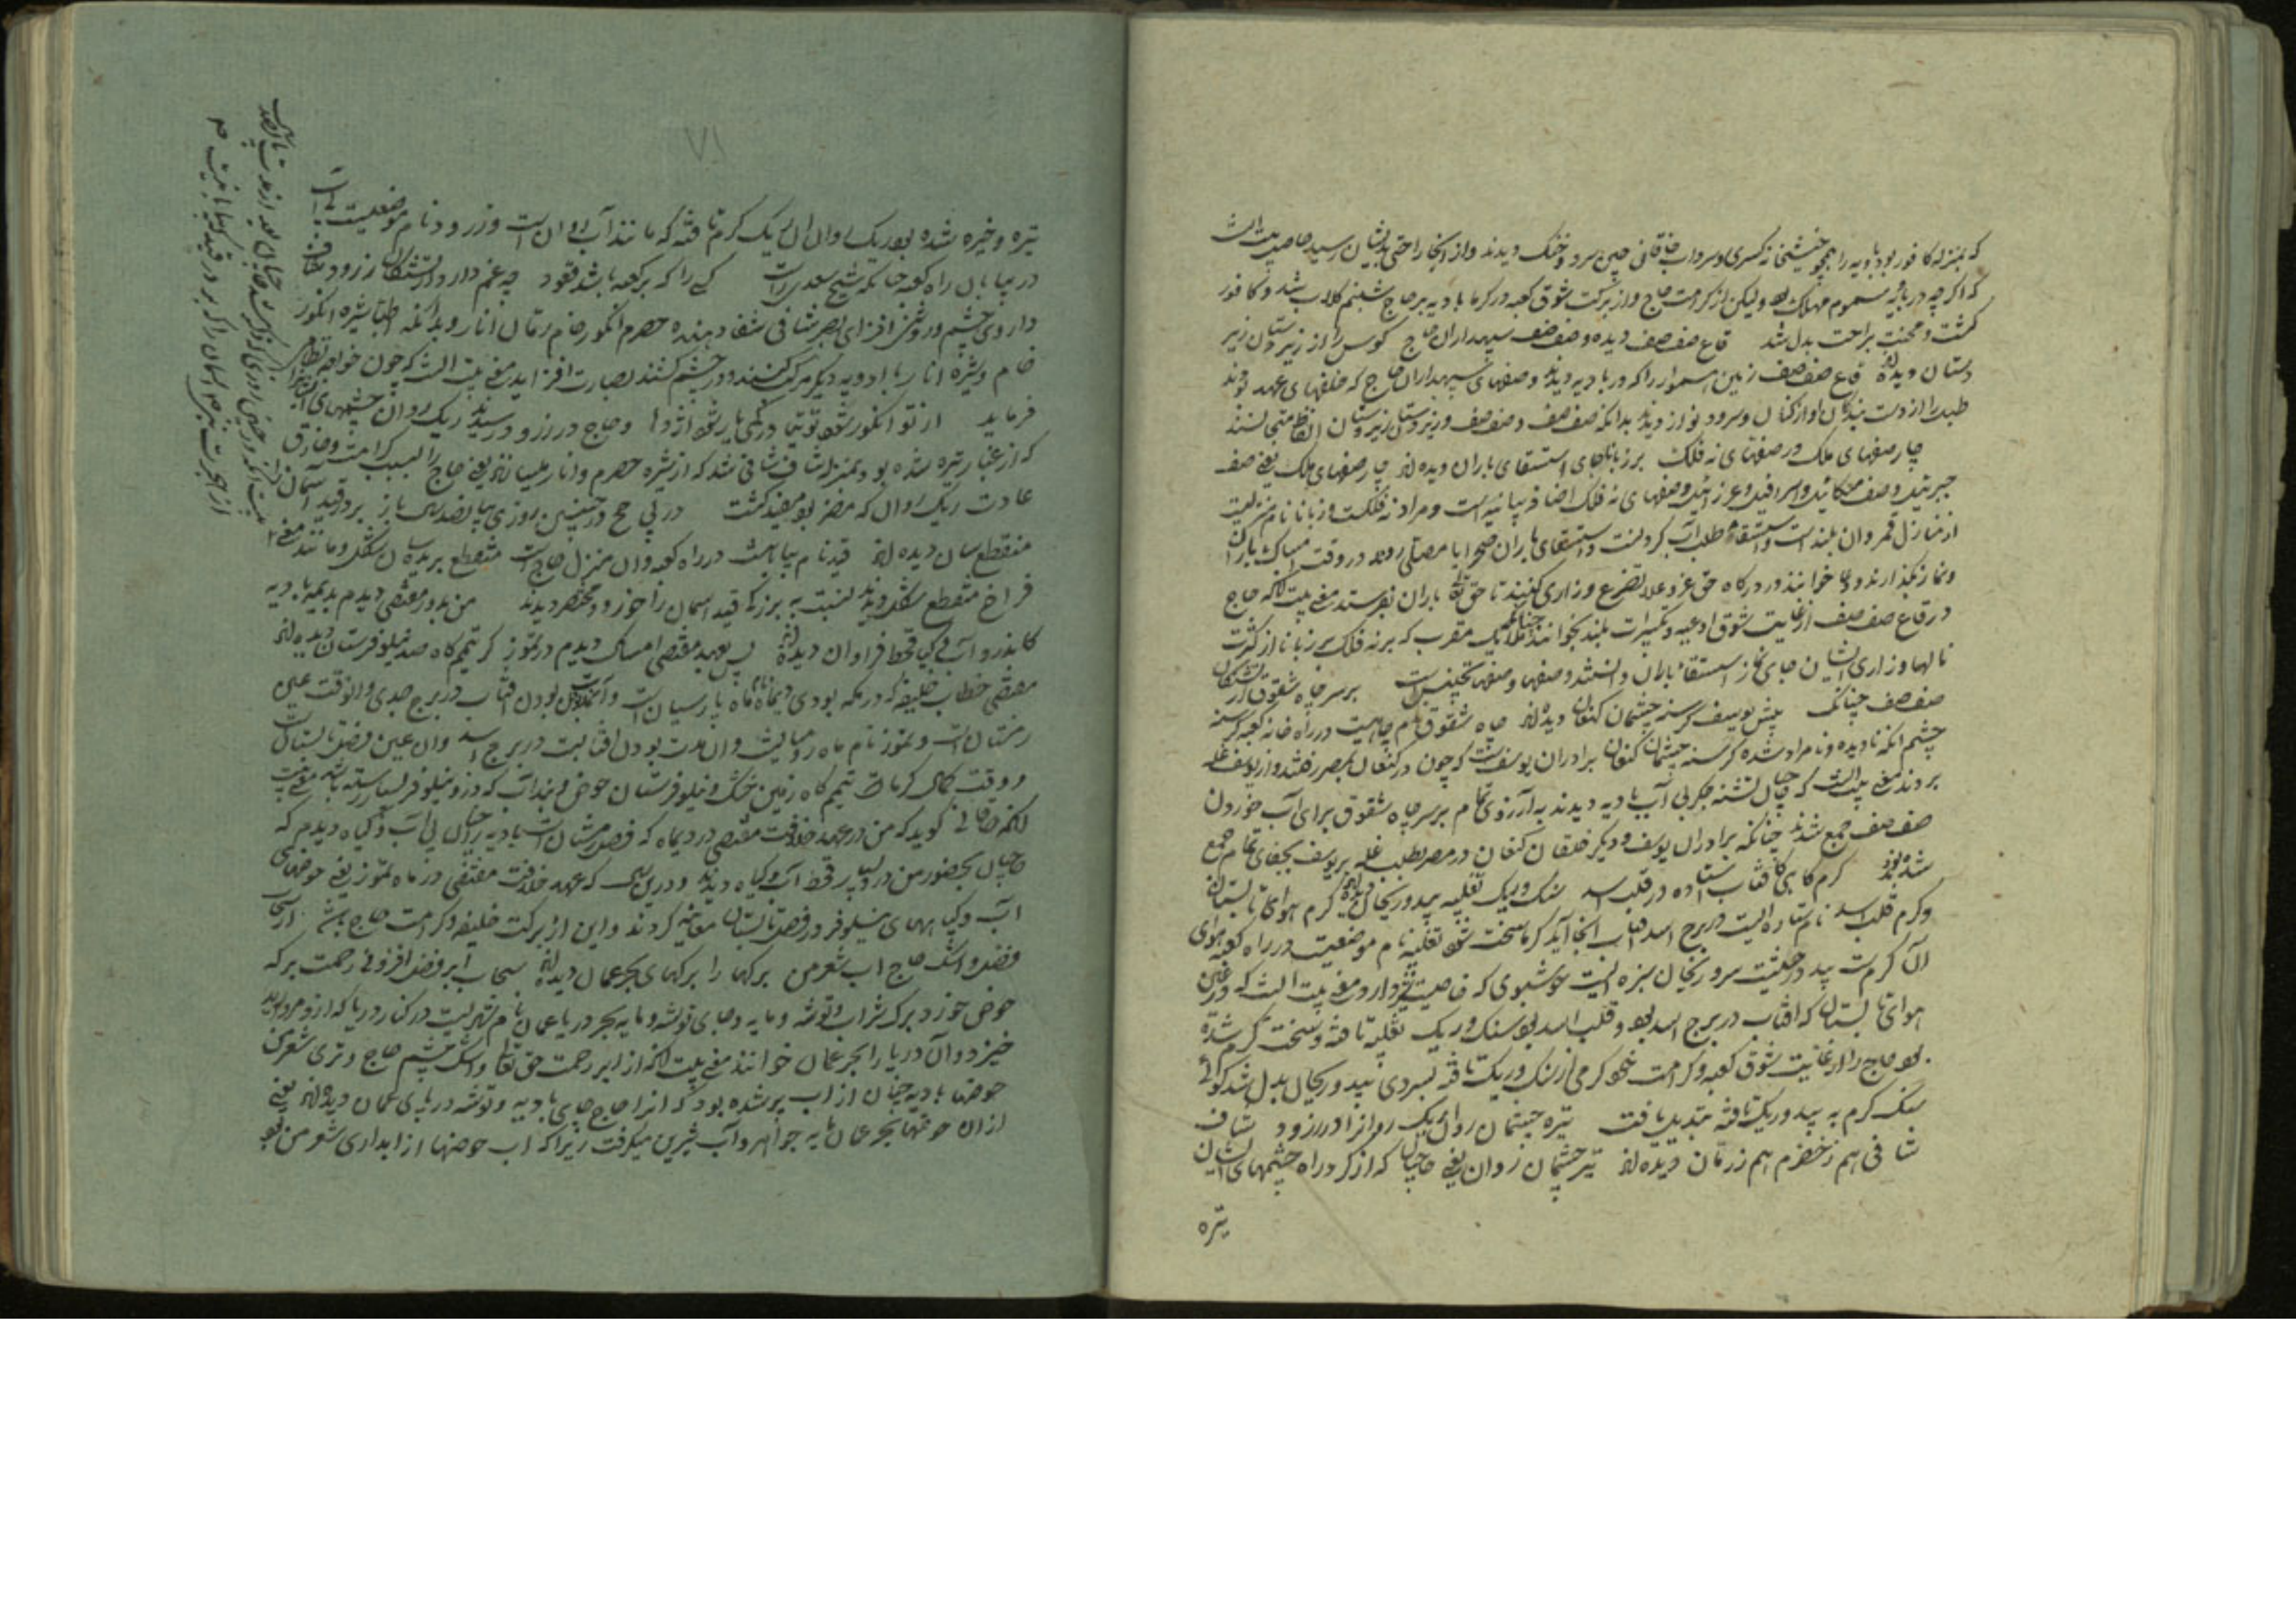 که بمنزله کافور بود بادیه را همچو خیشخانه کسری و سرداب خاقانی چین سرد و خنک دیدند و از انجا راحتی بدیشان رسید حاصل بیت انست
که اگرچه در بادیه سموم مهلک بود ولیکن از کرامت حاج و از برکت شوق کعبه در کرما بادیه بر حاج شبنم کلاب شد و کافور
کشت و محنت براحت بدل شد قاع صفصف دیده و صف صف سپهداران حاج کوس را از زیر دستان زیر
دستان دیده‌اند قاع صفصف زمین هموار را که در بادیه دیدند و صفهای سپهداران حاج که خلقهای عهد بودند
طبل را از دست بندکان اواز کنان و سرود نواز دیدند بدانکه صفصف و صف صف و زیر دستان زیر دستان الفاظ متجانسند
چار صفهای ملک در صفهای نه فلک بر زبانا جای استسقای باران دیده‌اند چار صفهای ملک یعنی صف
جبرئیل و صف میکائیل و اسرافیل و عزرائیل و صفهای نه فلک اضافه بیانیه است و مراد نه فلکست و زبانا نام منزلیست
از منازل قمر و ان بلند است و استسقا طلب آب کردنست و استسقای باران صحرا یا مصلی روند در وقت امساک باران
و نماز بگذارند و دعا خوانند و در درکاه حق عز و علا تضرع و زاری کنند تا حق تعالی باران بفرستد معنی بیت آنکه حاج
در قاع صفصف از غایت شوق ادعیه و تکبیرات بلند بخوانند چنانکه ملایک مقرب که بر نه فلک بر زبانا از کثرت
نالها و زاری ایشان جای نماز استسقاء باران دانستند و صفها و صفها تجنیس است بر سر چاه شقوق از تشنکان
صف صف چنانک پیش یوسف کرسنه چشمان کنعان دیده‌اند چاه شقوق نام چاهیست در راه خانه کعبه کرسنه
چشم انکه نادیده و نامراد شده کرسنه چشمان کنعان برادران یوسفست که چون در کنعان بمصر رفتند و از یوسف غله
بردند معنی بیت انست که حاجیان تشنه جکر بی آب بادیه دیدند به آرزوی تمام بر سر چاه شقوق برای آب خوردن
صف صف جمع شدند چنانکه برادران یوسف و دیکر خلقان کنعان در مصر بطلب غله بر یوسف بجفای تمام جمع
شده بودند کرم کاهی کافتاب استاده در قلب اسد سنک و ریک ثعلبیه بید و ریحان دیده‌اند کرم هوای تابستان
و کرم قلب اسد نام ستاره ایست در برج اسد افتاب انجا آید کرما سخت شود ثعلبیه نام موضعیست در راه کعبه هوای
آن کرمست بید درختیست سرد ریحان سبزه ایست خوشبوی که خاصیت سرد دارد معنی بیت انست که در عین
هوای تابستان که افتاب در برج اسد بود و قلب اسد بود سنک و ریک ثعلبیه تافته و سخت کرم شده
بود حاج را از غایت شوق کعبه و کرامت خود کرمی از سنک و ریک تافته بسردی بید و ریحان بدل شد کوئی
سنک کرم به بید و ریک تافته تبدیل یافت تیره چشمان روان ریک روانرا در زرود شاف
شافی هم ز حصرم هم ز رمان دیده‌اند تیره چشمان روان یعنی حاجیان که از کرد راه چشمهای ایشان
تیره
۷۱
تیره و خیره شده بود ریک روان ان ریک کرم تافته که مانند آب روان است و زرود نام موضعیست
در بیابان راه کعبه چنانکه شیخ سعدی راست کسی را که بر کعبه باشد قعود چه غم دارد از تشنکان زرود شاف
داروی چشم و روشن افزای بصر شافی شفا دهنده حصرم انکور خام رمان انار و بدانکه اطبا شیره انکور
خام و شیره انار با ادویه دیکر مرکب کنند و در چشم کشند بصارت افزاید معنی بیت انست که چون خواجه نظامی
فرماید از تو انکور شود توتیا و حاج در زرود رسیدند ریک روان چشمهای
که از غبار تیره شده بود بمنزله شاف شافی شد که از شیره حصرم و انار میسازند یعنی حاج را بسبب کرامت و خارق
عادت ریک روان که مضر بود مفید کشت در پی حج در چنین روزی بپانصد سال باز بر در فید آسمان را
منقطع سان دیده‌اند فید نام بیابانیست در راه کعبه و ان منزل حاجست منقطع بریده سان شکل و مانند معنی
فراخ منقطع شکل دیدند نسبت به بزرکی فید اسمان را خورد و مختصر دیدند من بدور مقتفی دیدم بدیمه بادیه
کاندرو آب و کیا قحط فراوان دیده‌اند پس بعهد مقتفی امساک دیدم در تموز کز تیمم کاه صد نیلوفرستان دیده‌اند
مقتفی خطاب خلیفه که در مکه بودی دیماه نام ماه پارسیان است و آن مدت بودن افتاب در برج جدی و انوقت عین
زمستان است و تموز نام ماه رومیانست و ان مدت بودن افتابست در برج اسد و ان عین فصل تابستان
و وقت کمال کرماست تیمم کاه زمین خشک و نیلوفرستان حوض و بند آب که درو نیلوفر بسیار رسته باشد معنی بیت
انکه خاقانی کوید که من در عهد خلافت مقتفی در دیماه که فصل زمستان است بادیه را چنان بی آب و کیاه دیدم که
حاجیان بحضور من در وی بسیار قحط آب و کیاه دیدند و درین سال که عهد خلافت مقتفی در ماه تموز یعنی حوضهای
آب و کیاههای نیلوفر در فصل تابستان معاینه کردند و این از برکت خلیفه و کرامت حاج باشد از سحاب
فضل و اشک حاج اب شعر من برکها را برکهای بحر عمان دیده‌اند سحاب ابر فضل افزونی رحمت برکه
حوض خورد برک شراب و توشه و مایه و جای توشه و مایه بحر دریا عمان نام شهریست در کنار دریا که ازو مروارید
خیزد و آن دریا را بحر عمان خوانند معنی بیت انکه از ابر رحمت حق تعالی و اشک چشم حاج و تری شعر من
حوضها بادیه چنان از اب پر شده بود که انرا حاج جای بادیه و توشه دریای عمان دیده‌اند یعنی
ازان حوضها بحر عمان مایه جواهر و آب شیرین میکرفت زیرا که اب حوضها از ابداری شعر من بود